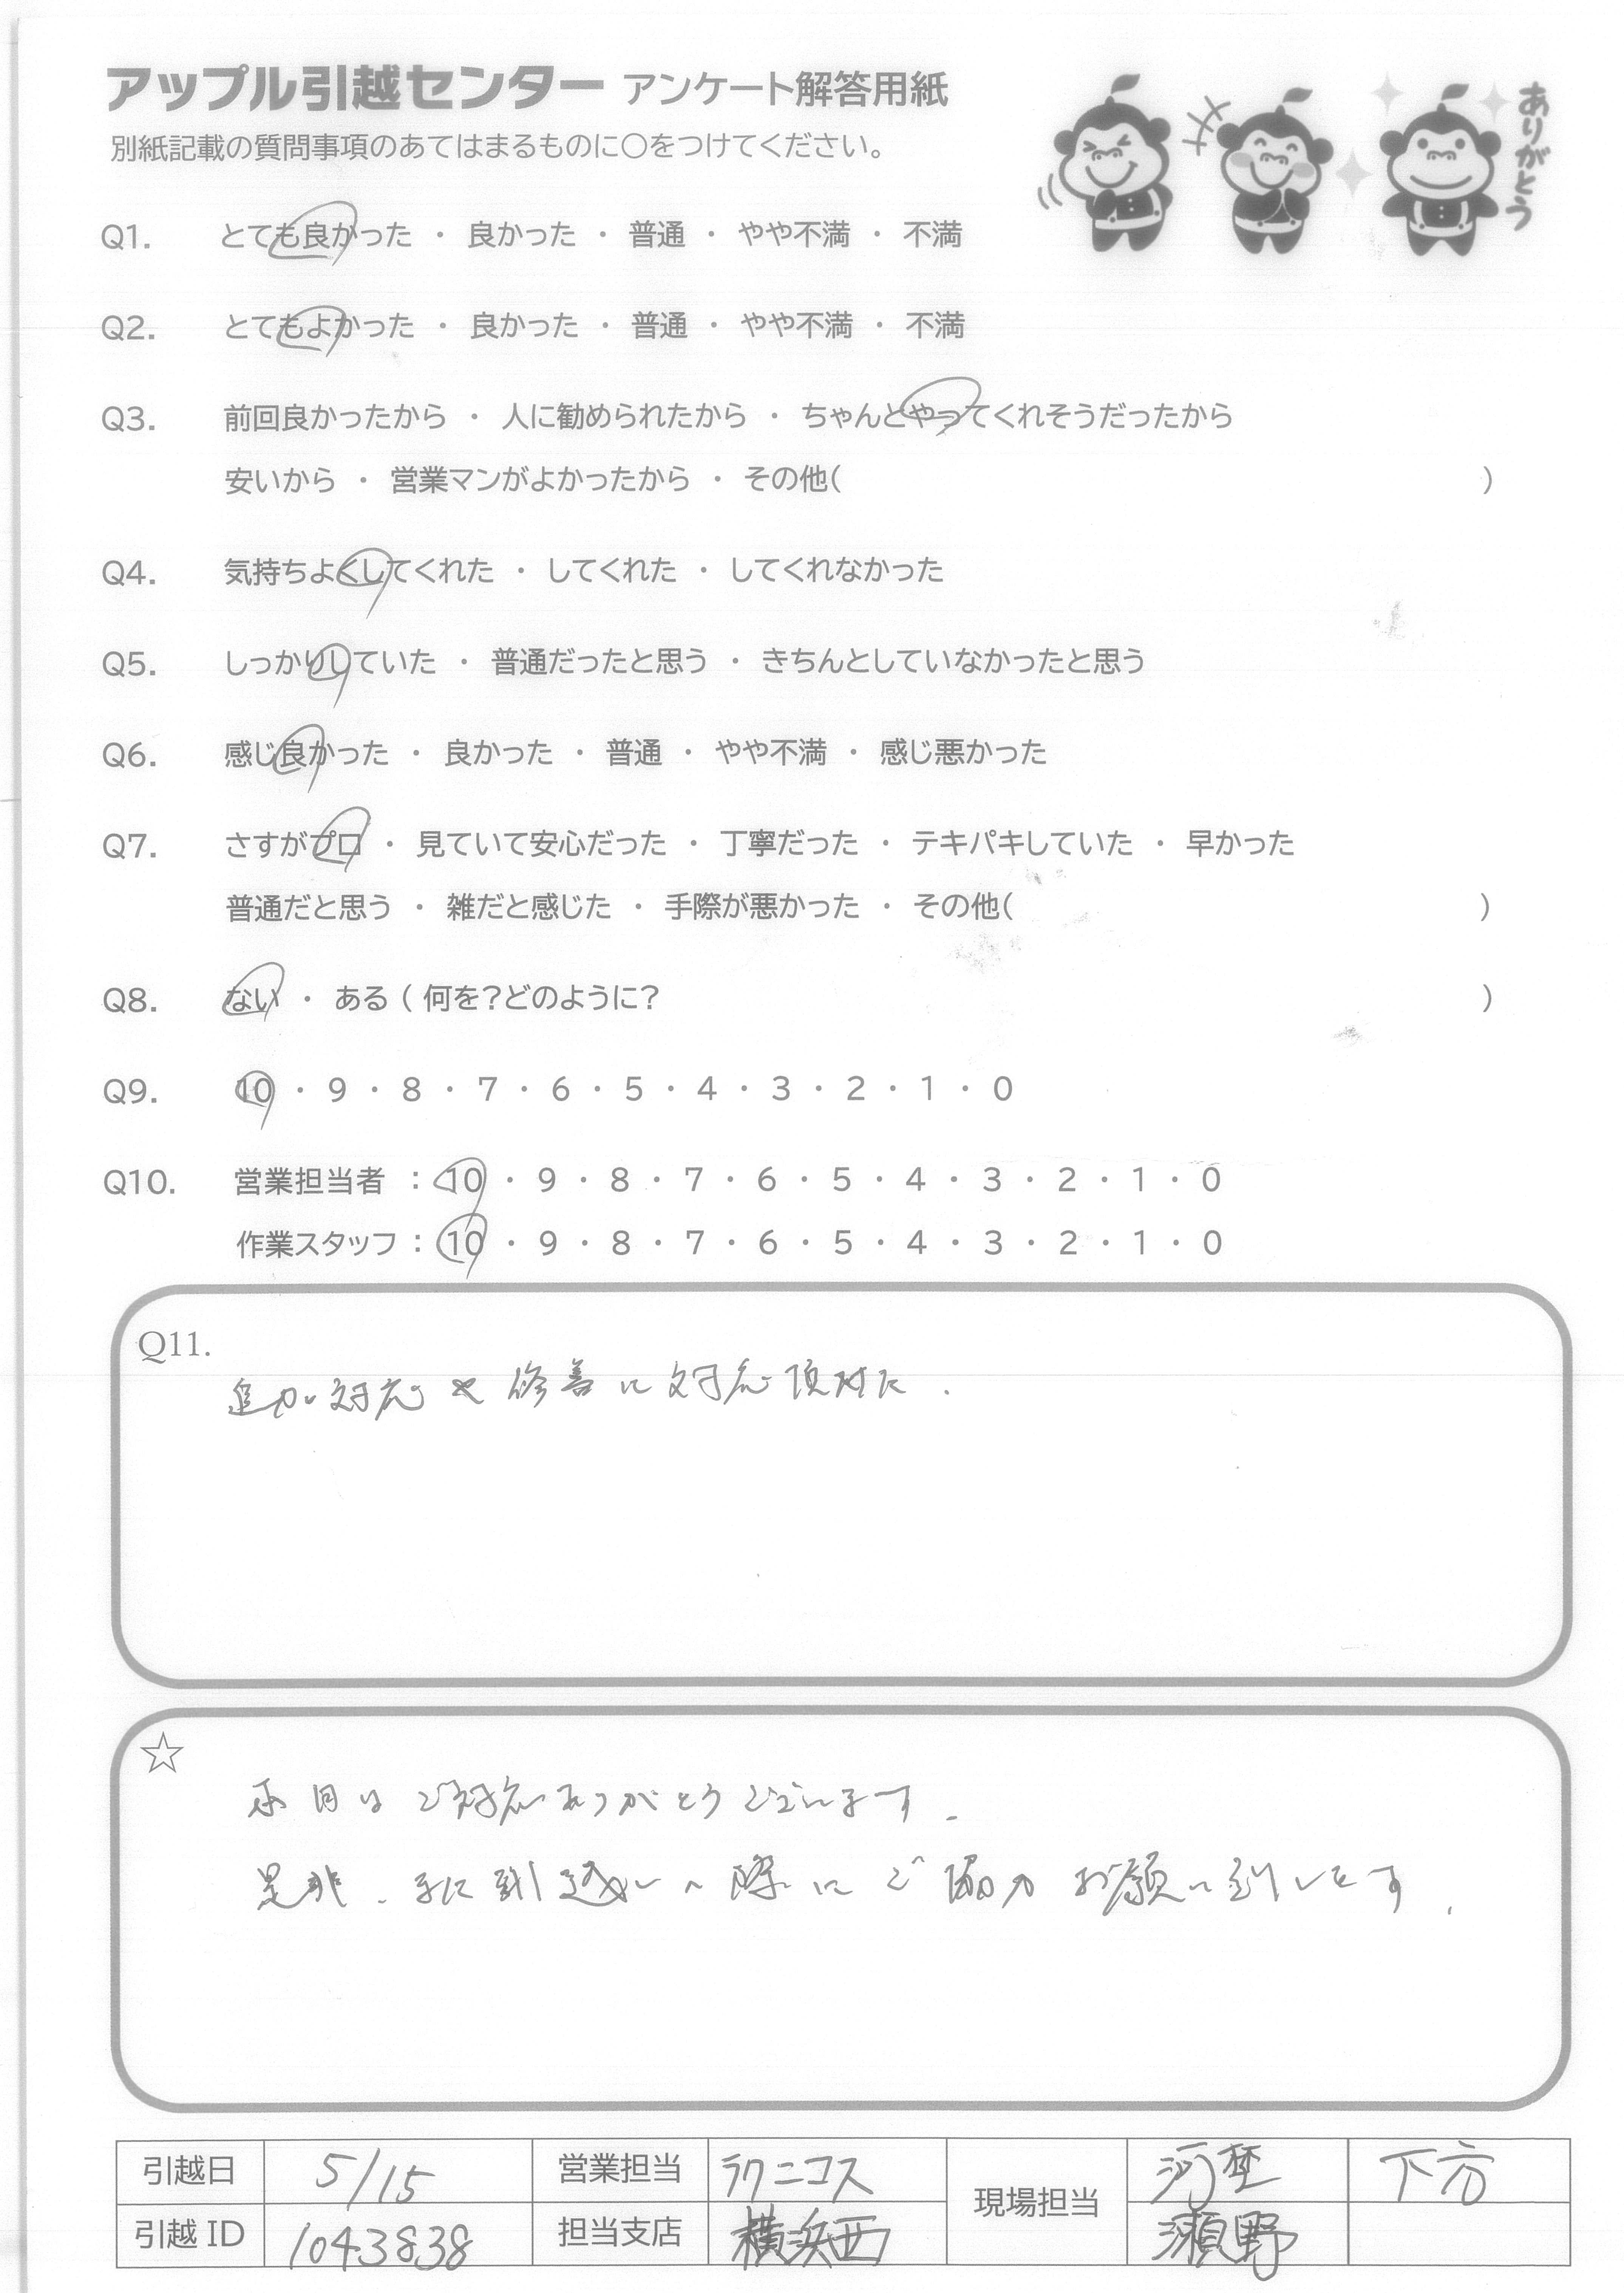 アップル引越センター アンケート解答用紙
別紙記載の質問事項のあてはまるものに〇をつけてください。
ありがとう
Q1. とても良かった ・ 良かった ・ 普通 ・ やや不満 ・ 不満
Q2. とてもよかった ・ 良かった ・ 普通 ・ やや不満 ・ 不満
Q3. 前回良かったから ・ 人に勧められたから ・ ちゃんとやってくれそうだったから
安いから ・ 営業マンがよかったから ・ その他( )
Q4. 気持ちよくしてくれた ・ してくれた ・ してくれなかった
Q5. しっかりしていた ・ 普通だったと思う ・ きちんとしていなかったと思う
Q6. 感じ良かった ・ 良かった ・ 普通 ・ やや不満 ・ 感じ悪かった
Q7. さすがプロ ・ 見ていて安心だった ・ 丁寧だった ・ テキパキしていた ・ 早かった
普通だと思う ・ 雑だと感じた ・ 手際が悪かった ・ その他( )
Q8. ない ・ ある ( 何を?どのように? )
Q9. 10 ・ 9 ・ 8 ・ 7 ・ 6 ・ 5 ・ 4 ・ 3 ・ 2 ・ 1 ・ 0
Q10. 営業担当者 : 10 ・ 9 ・ 8 ・ 7 ・ 6 ・ 5 ・ 4 ・ 3 ・ 2 ・ 1 ・ 0
作業スタッフ : 10 ・ 9 ・ 8 ・ 7 ・ 6 ・ 5 ・ 4 ・ 3 ・ 2 ・ 1 ・ 0
Q11.
追加対応や修善に対応頂けた.
☆
本日はご対応ありがとうございます.
是非、引越しの際にご協力お願い致します.
引越日 5/15 営業担当 ラクニコス 現場担当 河埜 下方
引越 ID 1043838 担当支店 横浜西 瀬野